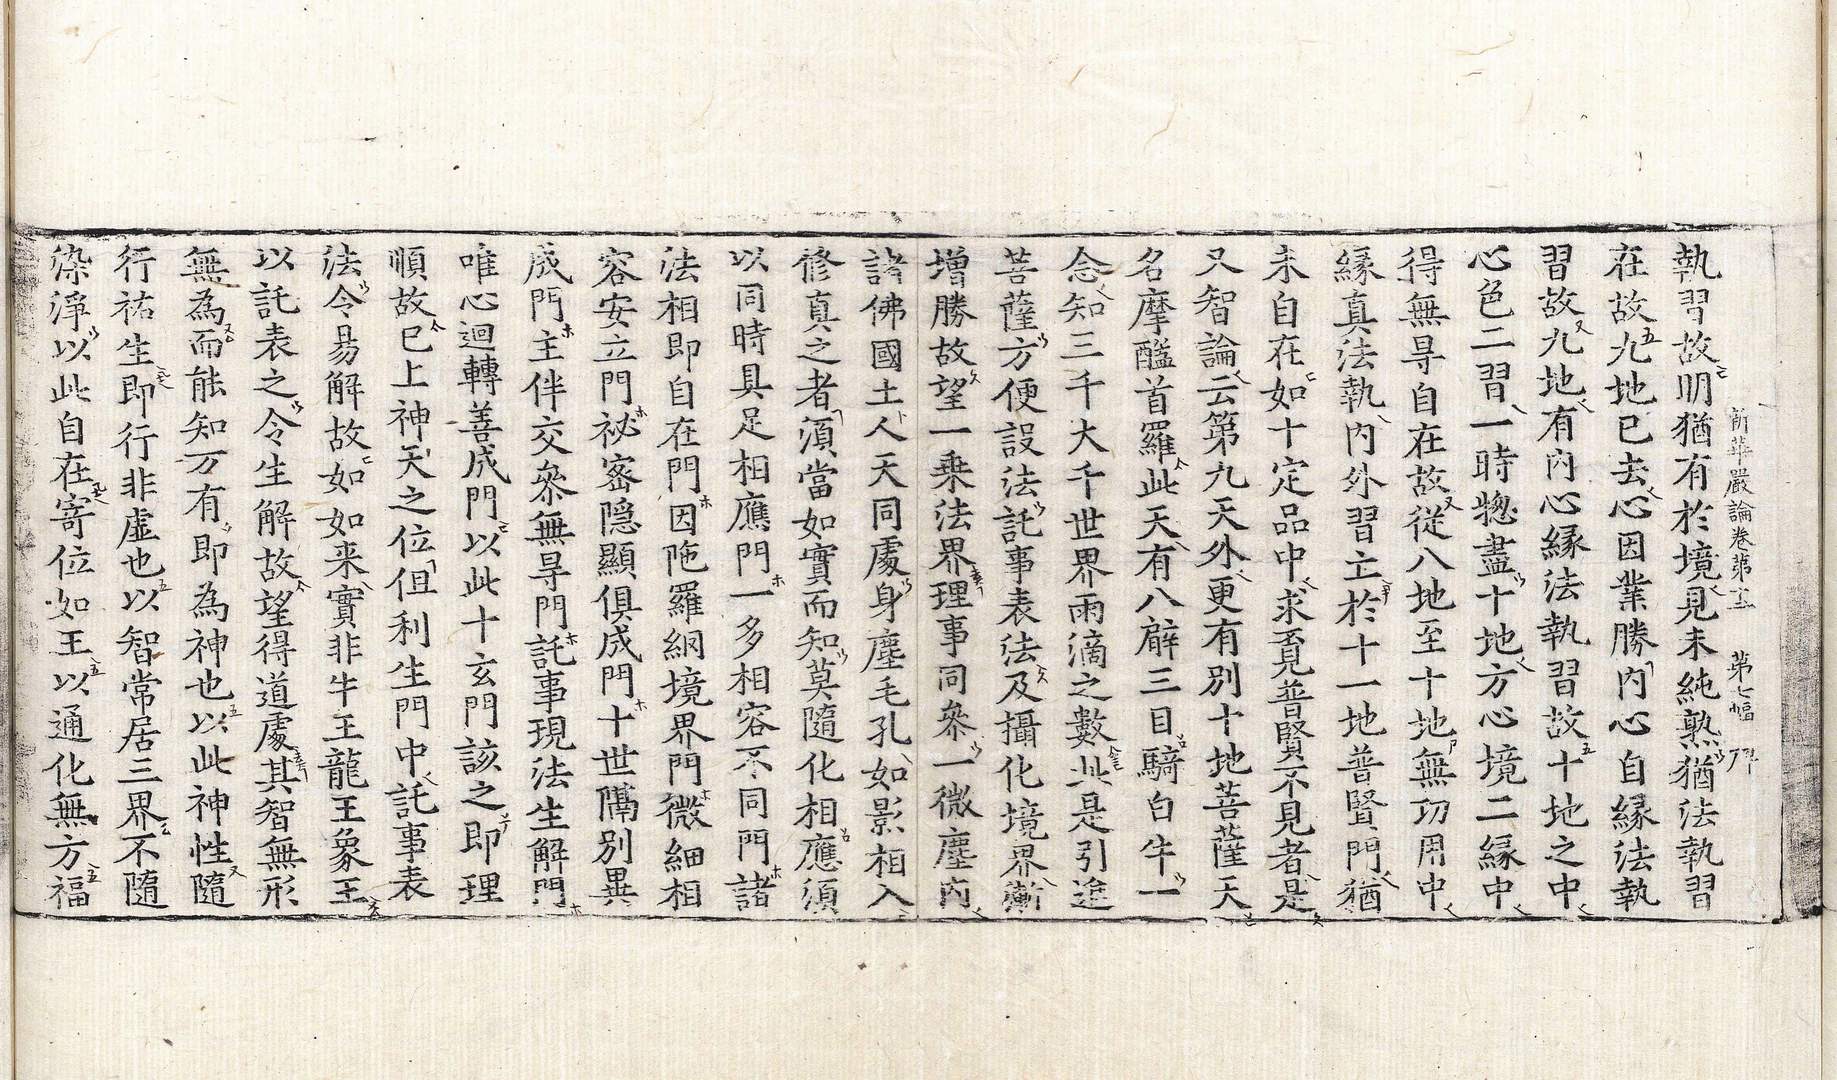 新華嚴論卷第十五 第七幅 丹
執習故明猶有於境見未純熟猶法執習
在故九地已去心因業勝內心自緣法執
習故九地有內心緣法執習故十地之中
心色二習一時揔盡十地方心境二緣中
得無㝵自在故從八地至十地無功用中
緣真法執內外習立於十一地普賢門猶
未自在如十定品中求覓普賢不見者是
又智論云第九天外更有別十地菩薩天
名摩醯首羅此天有八臂三目騎白牛一
念知三千大千世界雨滴之數此是引進
菩薩方便設法託事表法及攝化境界漸
增勝故望一乘法界理事同叅一微塵內
諸佛國土人天同處身塵毛孔如影相入
修真之者湏當如實而知莫隨化相應須
以同時具足相應門一多相容不同門諸
法相即自在門因陁羅網境界門微細相
容安立門祕密隱顯俱成門十世隔別異
成門主伴交叅無㝵門託事現法生解門
唯心迴轉善成門以此十玄門該之即理
順故已上神天之位但利生門中託事表
法令易解故如如来實非牛王龍王象王
以託表之令生解故望得道處其智無形
無為而能知万有即為神也以此神性隨
行祐生即行非虛也以智常居三界不隨
染淨以此自在寄位如王以通化無方福